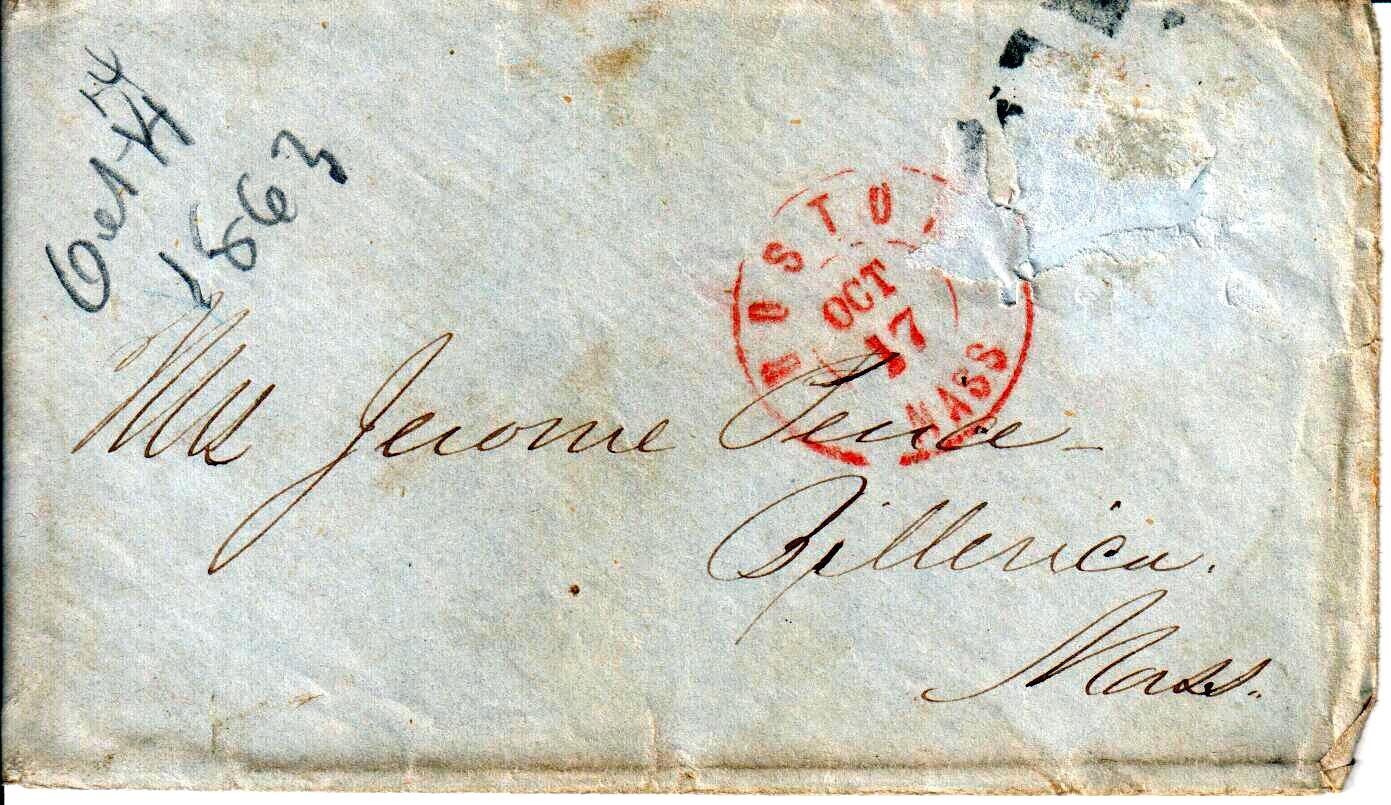 Oct 14
1863
BOSTON
OCT
17
MASS
Mrs Jerome
Billerica.
Mass.